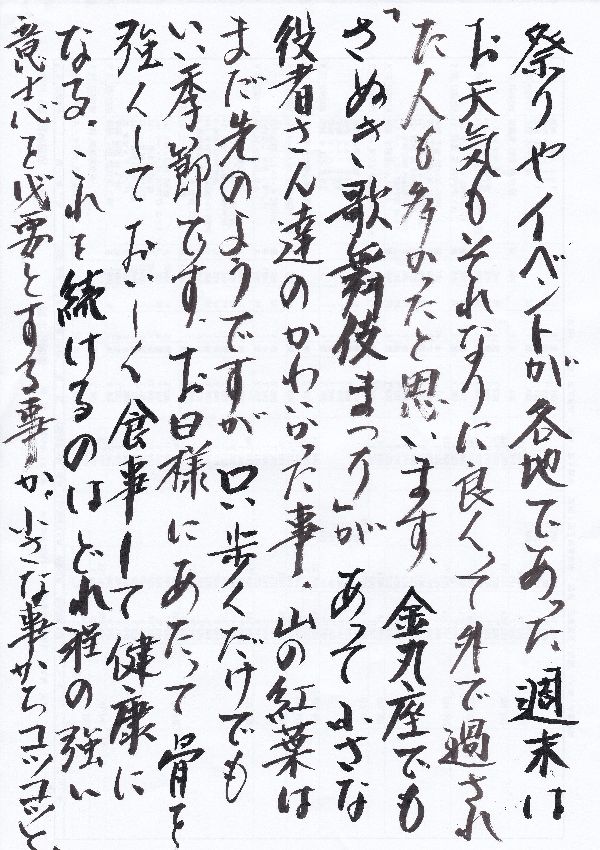 祭りやイベントが各地であった週末は
お天気もそれなりに良くって外で過され
た人も多かったと思います。金丸座でも
「さぬき歌舞伎まつり」があって小さな
役者さん達のかわいかった事。山の紅葉は
まだ先のようですが歩くだけでも
いい季節です。お日様にあたって骨を
強くしておいしく食事して健康に
なる。これを続けるのはどれ程の強い
意志を必要とする事か。小さな事からコツコツと、